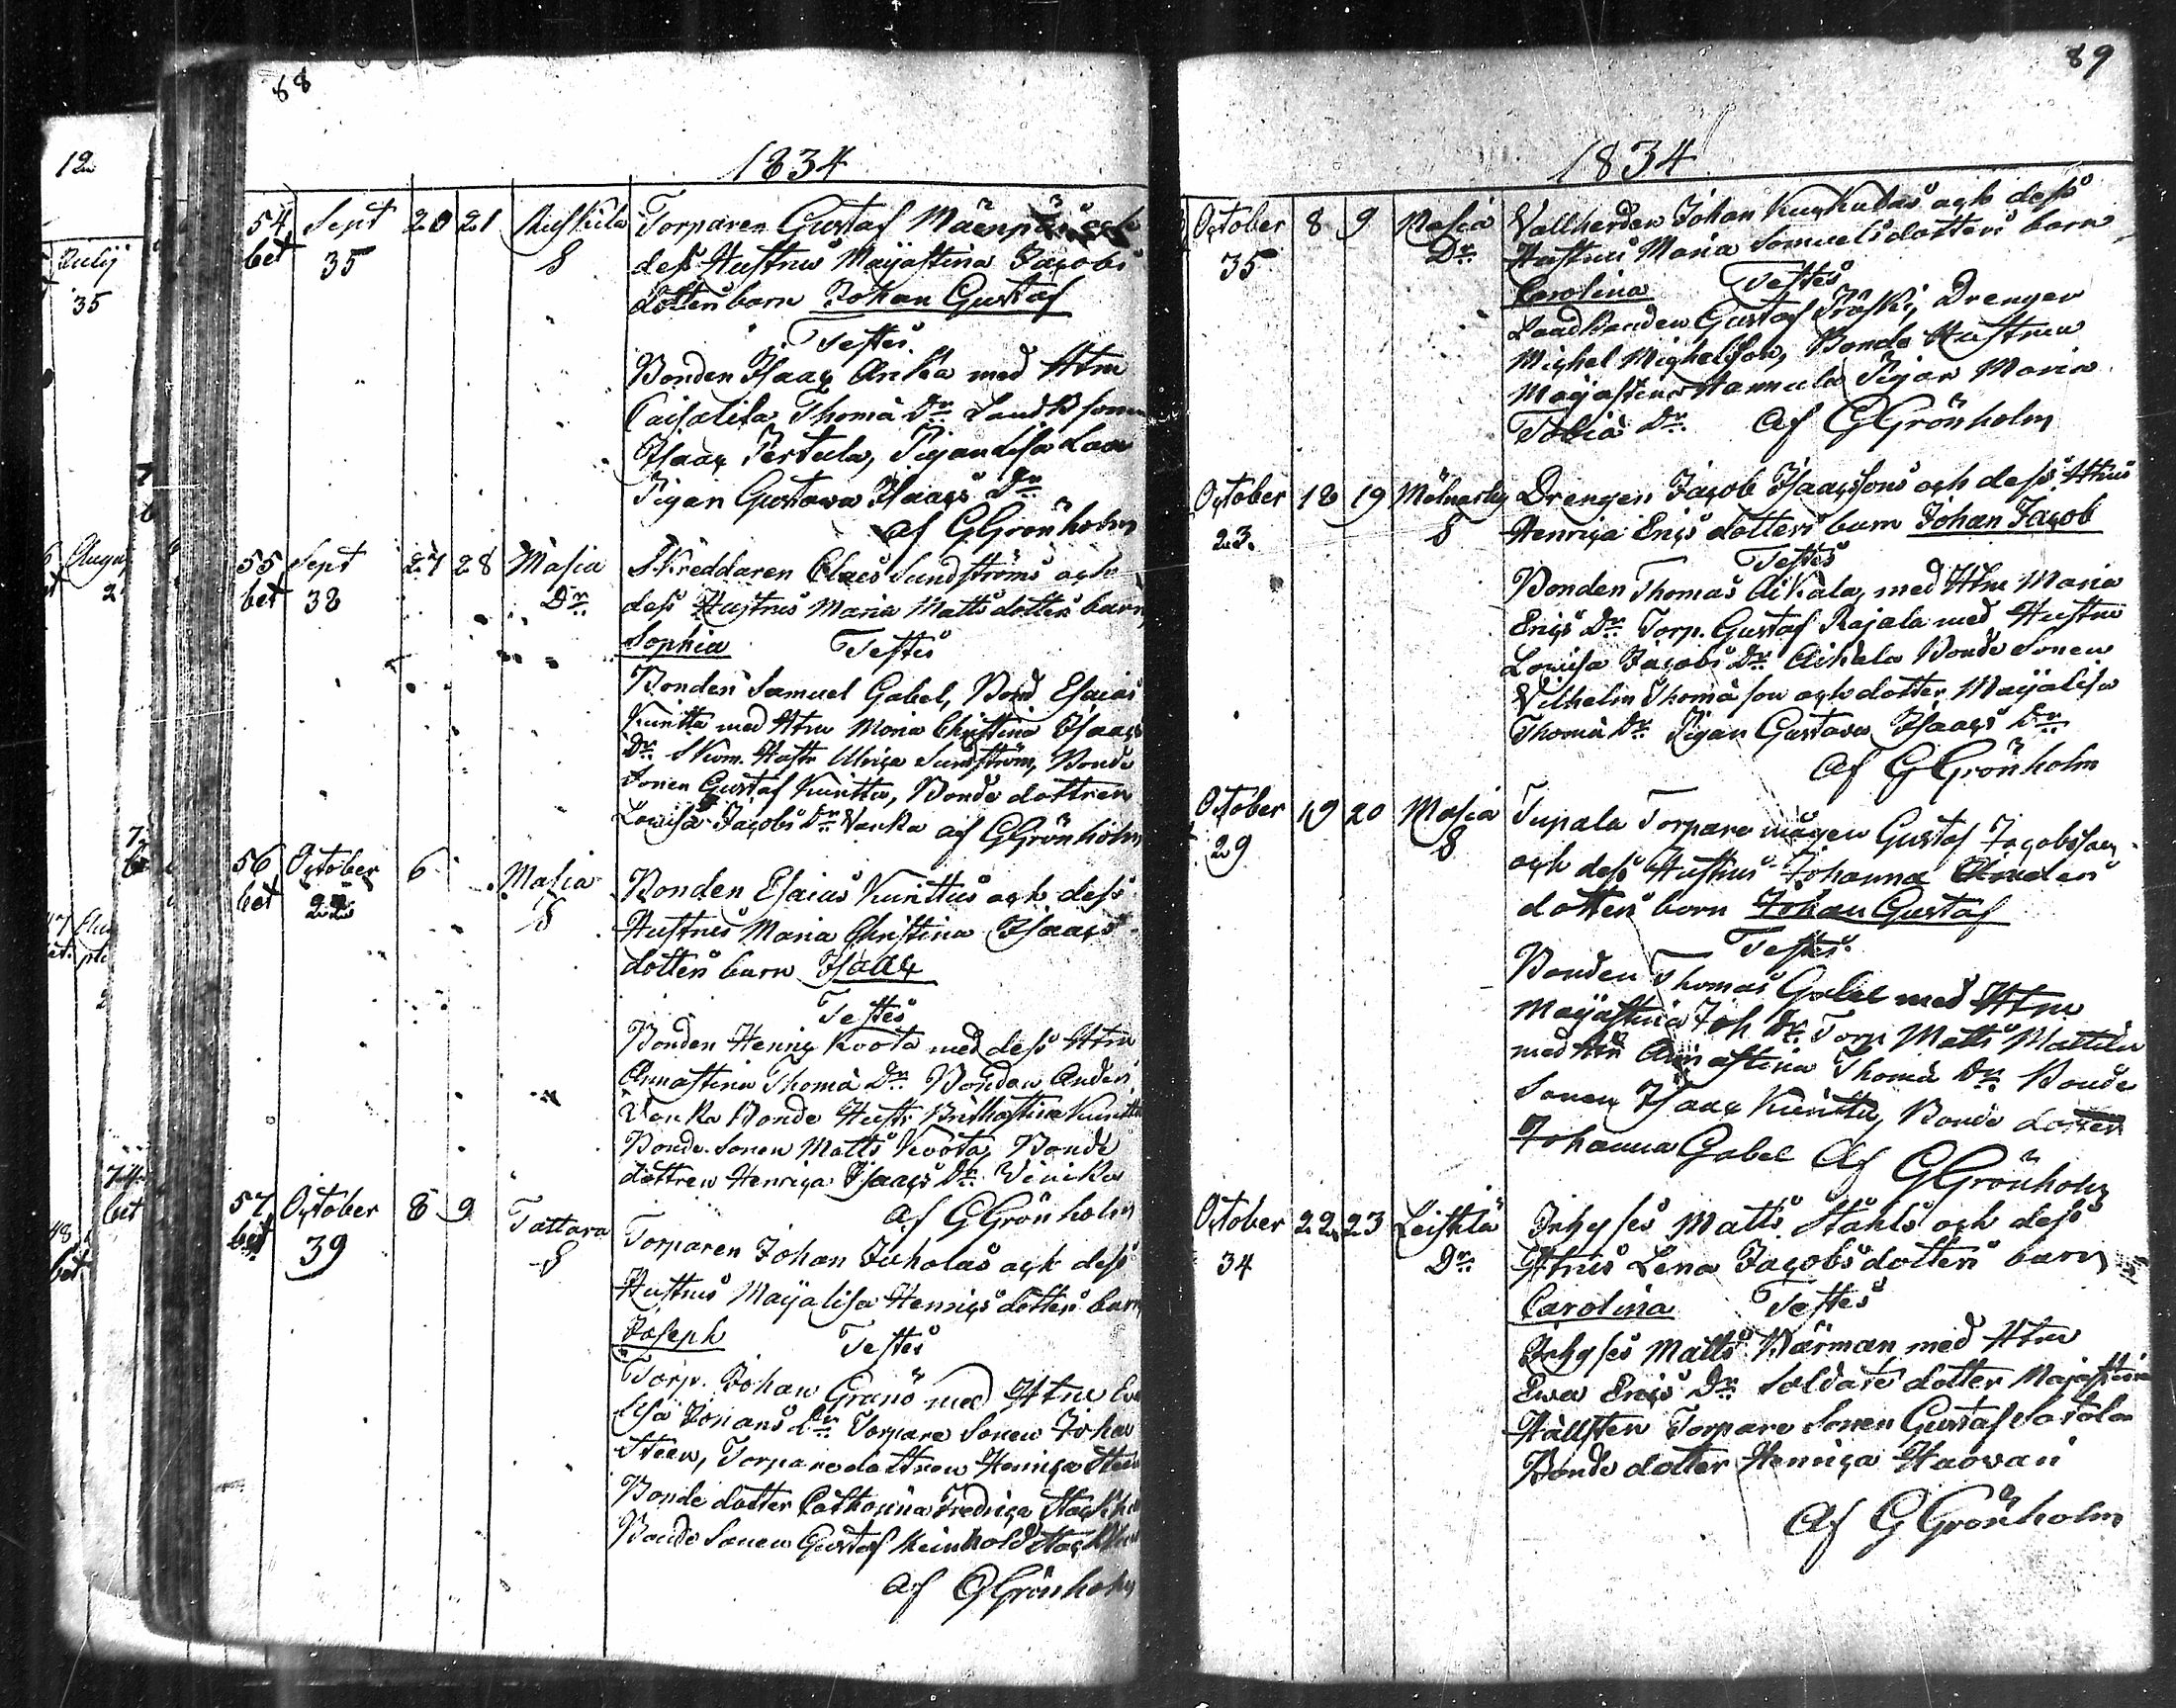 88
1834
54 Sept 20 21 Torparen Gustaf Mäenpäs och
bet 35 S dess Hustrus Maijastina Jacobs
dotters barn Johan Gustaf
Testes
Bonden Isaac Anka med Hru
Caisalisa Thomä Dr Landb sonen
Isaac Pertula, Pigan Lisa
Pigan Gustava Isaacs Dr
af GGrönholm
55 Sept 27 28 Masia Skreddaren Claes Sundströms och
bet 32 Dr dess Hustrus Maria Matts dotters barn
Sophia Testes
Bonden Samuel Gabel, Bond Esaias
Kuritta med Htru Maria Christina Isaacs
Dr Skom. Hustr Ulrica Sundström, Bonde
Sonen Gustaf Kuritta, Bonde dottren
Lovisa Jacobs Dr Vanka af GGrönholm
56 October 6 Masia Bonden Esaias Kurittus och dess
bet 22 S Hustrus Maria Christina Isaacs
dotters barn Isaac
Testes
Bonden Henric Koota med dess Htru
Annastina Thomä Dr Bonden Anders
Vanka Bonde Hustr Brithastina Kuritta
Bonde Sonen Matts Koota, Bonde
dottren Henrica Isaacs Dr
af GGrönholm
57 October 8 9 Tattara Torparen Johan Juholas och dess
bet 39 S Hustrus Maijalisa Henrics dotters barn
Joseph Testes
Torp. Johan Granö med Htru
Lisa Johans Dr Torpare Sonen Johan
Steen, Torpare dottren Henrica Steen
Bonde dotter Catharina Fredrica
Bonde Sonen Gustaf Reinhold
af GGrönholm
89
1834
October 8 9 Masia Vallherden Johan Kuckulas och dess
35 Dr Hustrus Maria Samuelsdotters barn
Carolina Testes
Landbonden Gustaf Präski, Drengen
Michel Michelson, Bonde Hustrun
Maijastina Hannula Pigan Maria
Tobiä Dr af GGrönholm
October 18 19 Mälnarby Drengen Jacob Isaacssons och dess Htrus
23. S Henrica Erics dotters barn Johan Jacob
Testes
Bonden Thomas Aikala, med Htru Maria
Erics Dr Torp. Gustaf Rajala med Hustru
Lovisa Jacobs Dr Aikala Bonde Sonen
Vilhelm Thomä son och dotter Maijalisa
Thomä Dr Pigan Gustava Isaacs Dr
Af GGrönholm
October 19 20 Masia Tupala Torpare mågen Gustaf Jacobsson
29 S och dess Hustrus Johanna Anders
dotters barn Johan Gustaf
Testes
Bonden Thomas Gabel med Htru
Maijastina Joh Dr Torp Matts Mattila
med Htru Annastina Thomä Dr Bonde
Sonen Isaac Kuritta, Bonde dotter
Johanna Gabel Af GGrönholm
October 22 23 Leistilä Inhyses Matts Ståhls och dess
34 Dr Htrus Lena Jacobsdotters barn
Carolina Testes
Inhyses Matts Wärman med Htru
Ewa Erics Dr Soldate dotter Majastina
Hällsten Torpare Sonen Gustaf Satola
Bonde dotter Henrica Haovari
Af GGrönholm